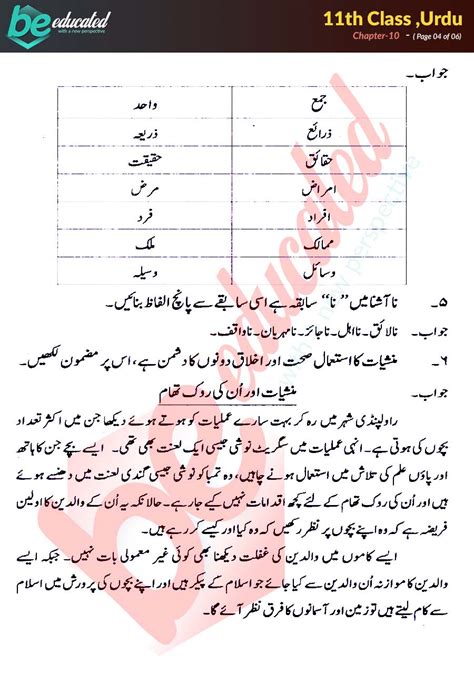 be educated
with a new perspective
11th Class ,Urdu
Chapter-10 - ( Page 04 of 06)
جواب۔
جمع واحد
ذرائع ذریعہ
حقائق حقیقت
امراض مرض
افراد فرد
ممالک ملک
وسائل وسیلہ
۵۔ ناآشنا میں ”نا“ سابقہ ہے اسی سابقے سے پانچ الفاظ بنائیں۔
جواب۔ نالائق۔ نااہل۔ ناجائز۔ نامہربان۔ ناواقف۔
۶۔ منشیات کا استعمال صحت اور اخلاق دونوں کا دشمن ہے، اس پر مضمون لکھیں۔
جواب۔ منشیات اور اُن کی روک تھام
راولپنڈی شہر میں رہ کر بہت سارے عملیات کو ہوتے ہوئے دیکھا جن میں اکثر تعداد
بچوں کی ہوتی ہے۔ انہی عملیات میں سگریٹ نوشی جیسی ایک لعنت بھی تھی۔ ایسے بچے جن کا ہاتھ
اور پاؤں علم کی تلاش میں استعمال ہونے چاہیں، وہ تمباکو نوشی جیسی گندی لعنت میں دھنسے ہوئے
ہیں اور اُن کی روک تھام کے لئے کچھ اقدامات نہیں کیے جا رہے۔ حالانکہ یہ اُن کے والدین کا اولین
فریضہ ہے کہ وہ اپنے بچوں پر نظر رکھیں کہ وہ کیا اور کیسے کر رہے ہیں۔
ایسے کاموں میں والدین کی غفلت دیکھنا بھی کوئی غیر معمولی بات نہیں۔ جبکہ ایسے
والدین کا موازنہ اُن والدین سے کیا جائے جو اسلام کے پیکر ہیں اور اپنے بچوں کی پرورش میں اسلام
سے کام لیتے ہیں تو زمین اور آسمانوں کا فرق نظر آئے گا۔
be educated
with a new perspective